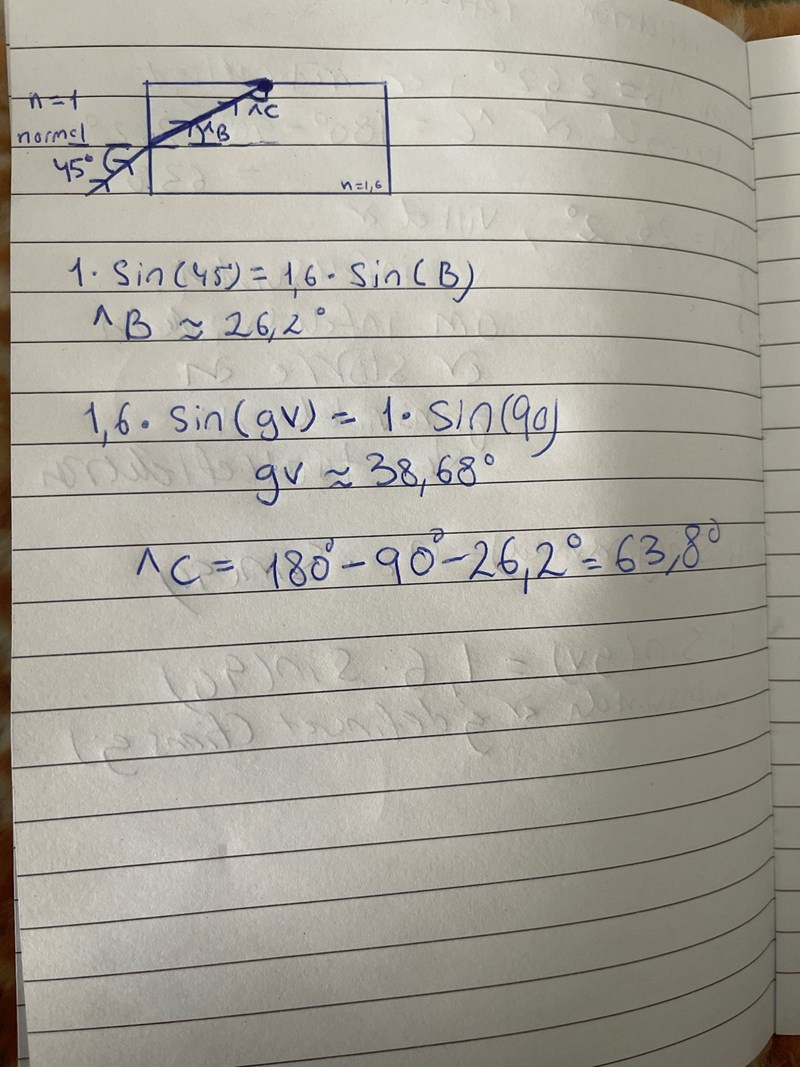 n=1
^C
normal
^B
45°
n=1,6
1· Sin(45)=1,6· Sin(B)
^B ≈ 26,2°
1,6· Sin(gv) = 1· Sin(90)
gv ≈ 38,68°
^C = 180°-90°-26,2°=63,8°